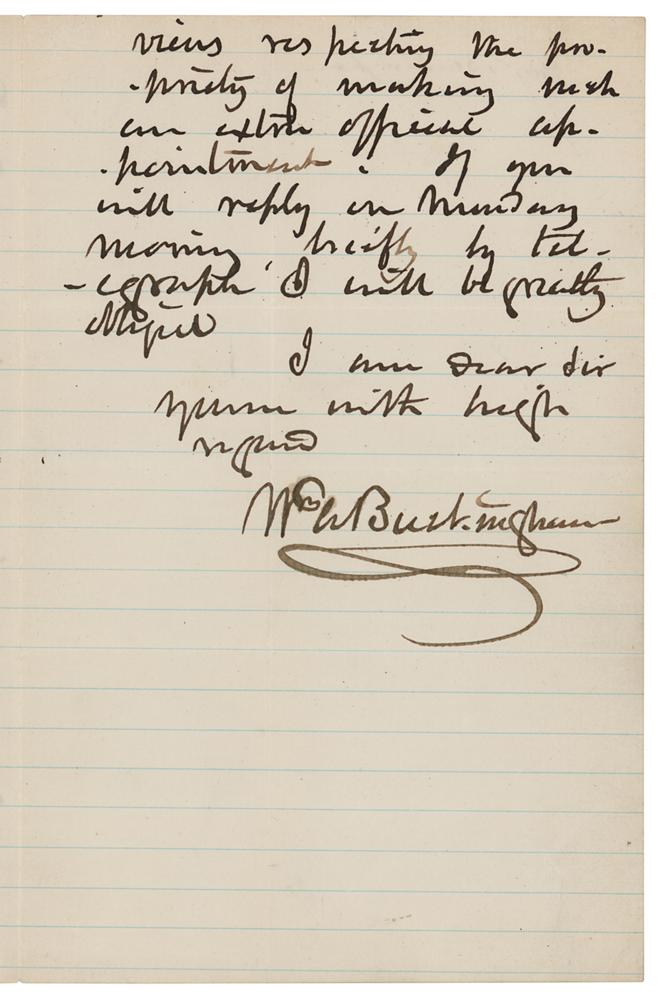 views respecting the pro-
-priety of making such
an extra official ap-
-pointment. If you
will reply on Monday
morning, briefly by tel-
-egraph I will be greatly
obliged
I am dear sir
yours with high
regard
Wm A Buckingham